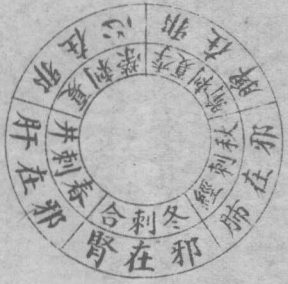 邪在肝
春刺井
邪在心
夏刺滎
邪在脾
季夏刺俞
邪在肺
秋刺經
邪在腎
冬刺合